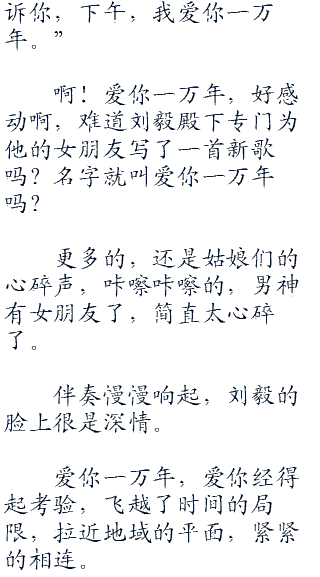 诉你，下午，我爱你一万
年。”
啊！爱你一万年，好感
动啊，难道刘毅殿下专门为
他的女朋友写了一首新歌
吗？名字就叫爱你一万年
吗？
更多的，还是姑娘们的
心碎声，咔嚓咔嚓的，男神
有女朋友了，简直太心碎
了。
伴奏漫漫响起，刘毅的
脸上很是深情。
爱你一万年，爱你经得
起考验，飞越了时间的局
限，拉近地域的平面，紧紧
的相连。